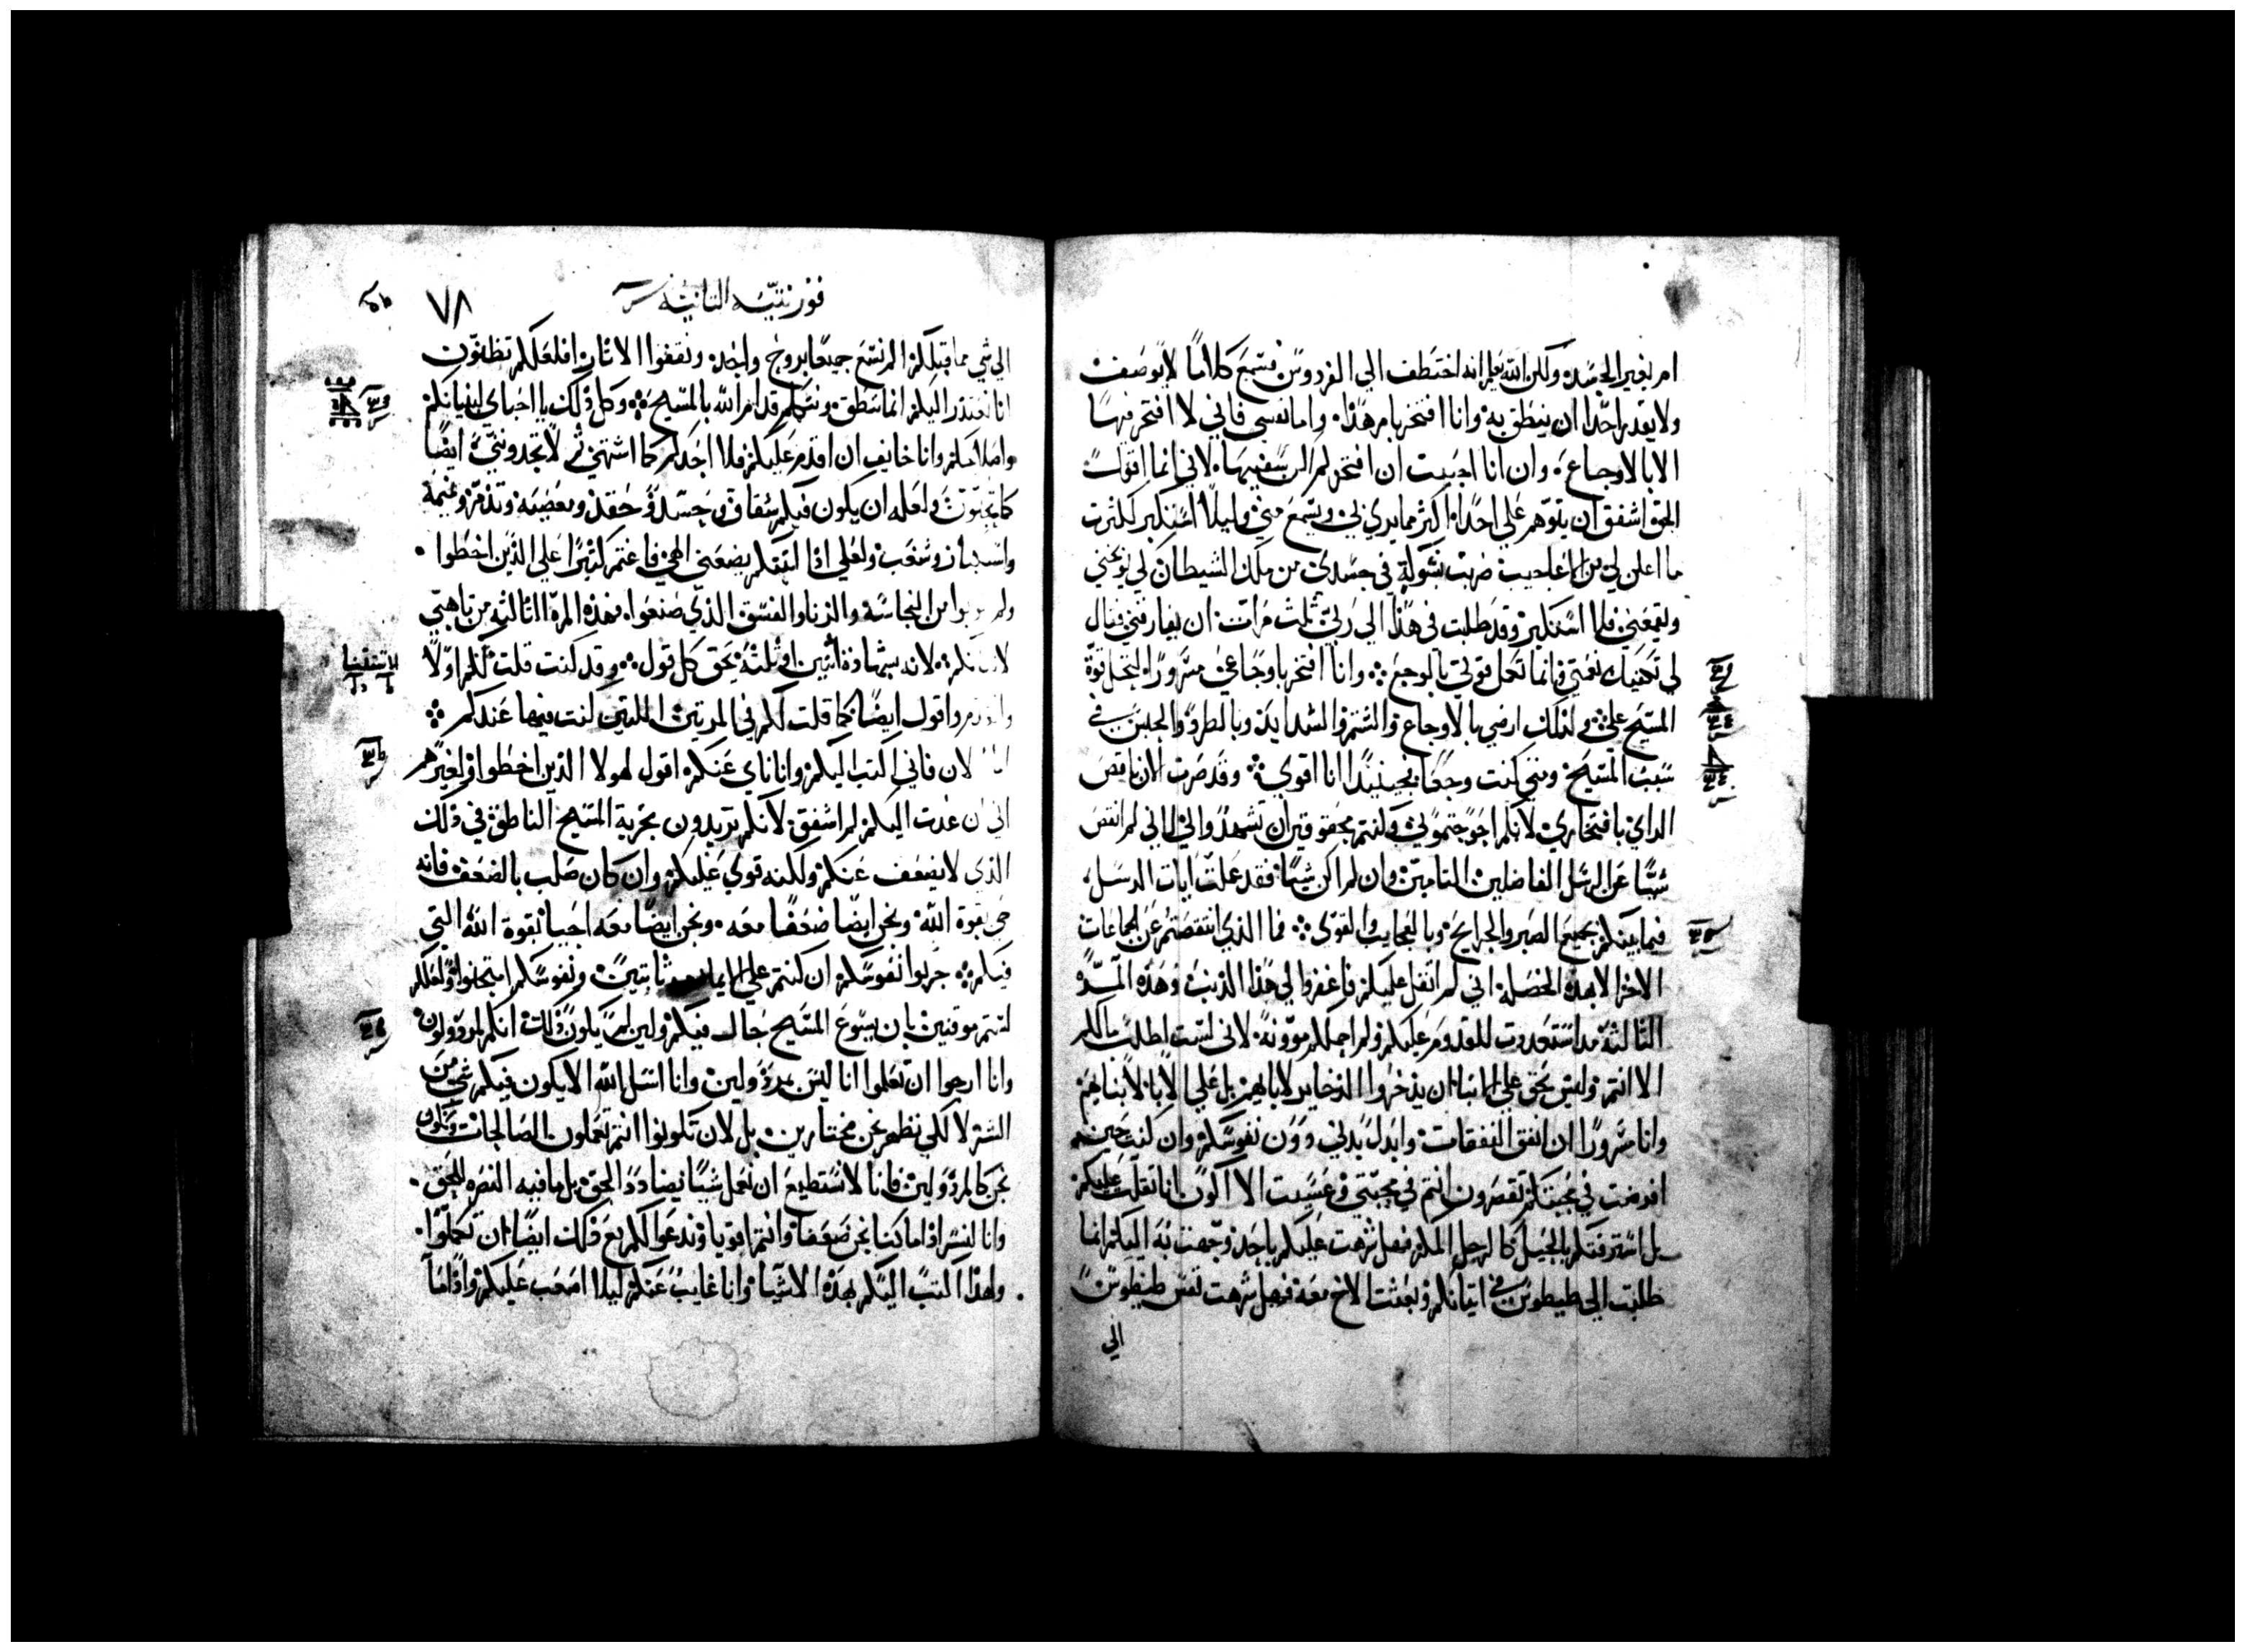 ام بغير الجسد ولكن الله يعلم انه اختطف الي الفردوس فسمع كلامًا لا يوصف
ولا يقدر احدا ان ينطق به وانا افتخر بامر هذا واما نفسي فاني لا افتخر فيها
الا بالاوجاع وان انا احببت ان افتخر لم اكن سفيها لاني انما اقول
الحق اشفق ان يتوهم علي احدا اكثر مما يري بي ويسمع مني وليلا استكبر لكثرت
ما اعلن لي من الاعاجيب ضربت بشوكة في جسدي من ملك الشيطان لكي يوجعني
وليقمعني فلا استكبر وقد طلبت في هذا الي ربي ثلث مرات ان يفارقني فقال
لي تكفيك نعمتي فانما تكمل قوتي بالوجع وانا افتخر باوجاعي مسرورًا لتحل قوة
المسيح علي ولذلك ارضي بالاوجاع والشتم والشدايد وبالطرد والحبس في
سبب المسيح ومتي كنت وجعا فحينيذا انا اقوي وقد صرت الان ناقص
الراي بافتخاري لانكم احوجتموني وانتم محقوقين ان تشهدوا لي اني لم انقص
شيًا عن الرسل الفاضلين التامين وان لم اكن شيًا فقد عملت ايات الرسل
فيما بينكم بجميع الصبر والجرايح وبالعجايب والقوي فما الذي انتقصتم عن الجماعات
الاخر الا بهذه الخصلة اني لم اثقل عليكم فاغفروا لي هذا الذنب وهذه المرة
الثالثة قد استعددت للقدوم عليكم ولم احملكم موونة لاني لست اطلب مالكم
الا انتم وليس يحق علي الابنا ان يذخروا الذخاير لابايهم بل علي الابا لابنايهم
وانا مسرورًا ان انفق النفقات وابدل بدني دون نفوسكم وان كنت حين
افرضت في محبتكم تقصرون انتم في محبتي وعسيت الا اكون انا ثقلت عليكم
بل استرقتكم بالحيل كالرجل المكر فهل شرهت عليكم باحد وجهت به اليكم انما
طلبت الي طيطوس في اتيانكم وبعثت الاخ معه فهل شرهت نفس طيطوس
الي
قورنتيه الثانيه
٧٨
الي شي مما قبلكم الم نسع جميعًا بروح واحد ونقفوا الاثار افلعلكم تظنون
انا نعتذر اليكم انما ننطق ونتكلم قدام الله بالمسيح وكل ذلك يا احباي لبنيانكم
وانا خايف ان اقدم عليكم فلا اجدكم كما اشتهي ثم لا تجدوني ايضًا
كما تحبون ولعله ان يكون فيكم شقاق وحسد وحقد ومعصيه وتذمر ونميمة
وشغب ولعلي اذا اتيتكم يضعني الهي فاغتم كثيرًا علي الذين اخطوا
ولم يتوبوا من النجاسة والزنا والفسق الذي صنعوا فهذه المرة الثالثة من تاهبي
لاتيانكم لانه بشهادة اثنين او ثلثه يحق كل قول وقد كنت قلت لكم اولًا
واقول ايضًا كما قلت لكم في المرتين اللتين كنت فيهما عندكم
الان فاني اكتب اليكم وانا ناي عنكم اقول لهولا الذين اخطوا ولغيرهم
اني ان عدت اليكم لم اشفق لانكم تريدون تجربة المسيح الناطق في ذلك
الذي لا يضعف عنكم ولكنه قوي عليكم وان كان صلب بالضعف فانه
حي بقوة الله ونحن ايضًا ضعفا معه ونحن ايضًا معه احيا بقوة الله التي
فيكم جربوا نفوسكم ان كنتم علي الايمان ثابتين ونفوسكم امتحنوا ولعلكم
لستم موقنين بان يسوع المسيح حال فيكم ولين لم يكون ذلك انكم لمرذولون
وانا ارجوا ان تعلموا انا ليس بمرذولين وانا اسل الله الا يكون فيكم شي من
الشر لا لكي نظهر نحن مختارين بل لان تكونوا انتم تعملون الصالحات ونكون
نحن كالمرذولين فانا لا نستطيع ان نعمل شيًا يضادد الحق بل ما فيه النصرة للحق
وانا لنسر اذا ما كنا نحن ضعفا وانتم اقويا وندعوا لكم مع ذلك ايضًا ان تكملوا
ولهذا اكتب اليكم بهذه الاشيا وانا غايب عنكم ليلا اصعب عليكم واذا ما